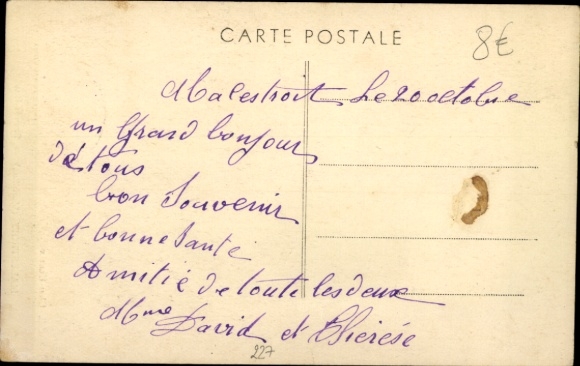 CARTE POSTALE
8€
Malestroit Le 20 octobre
un Grand bonjour
de tous
bon Souvenir
et bonne Santé
Amitié de toute les deux
Mme David et Thérèse
227